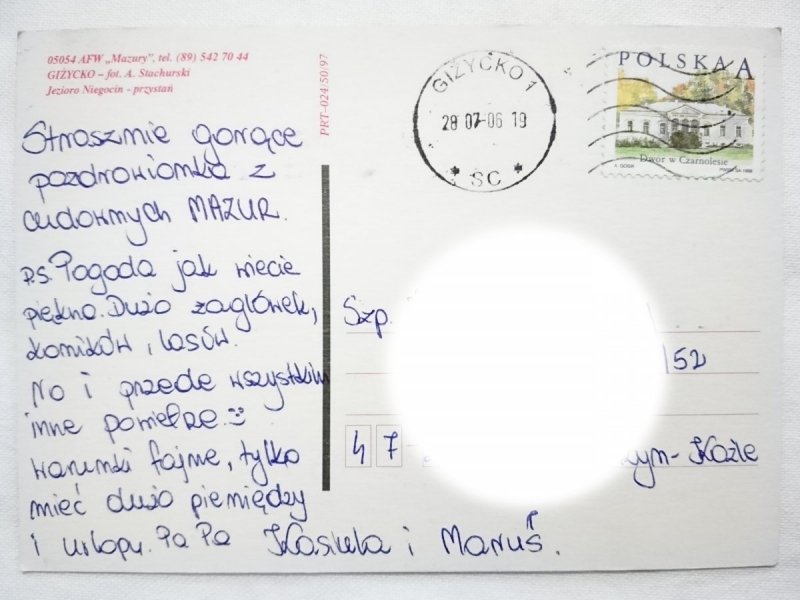 05054 AFW „Mazury”, tel. (89) 542 70 44
GIŻYCKO – fot. A. Stachurski
Jezioro Niegocin - przystań
PRT-024/50/97
GIŻYCKO 1
28 07-06 19
* SC *
POLSKA A
Dwór w Czarnolesie
Strasznie gorące
pozdrowionka z
cudownych MAZUR.
P.S. Pogoda jak wiecie
piękna. Dużo żaglówek,
domków, lasów.
No i przede wszystkim
inne powietrze.
Warunki fajne, tylko
mieć dużo pieniędzy
i urlopu. Pa Pa Kasiula i Maruś.
Szp.
/52
47 zyn-Koźle